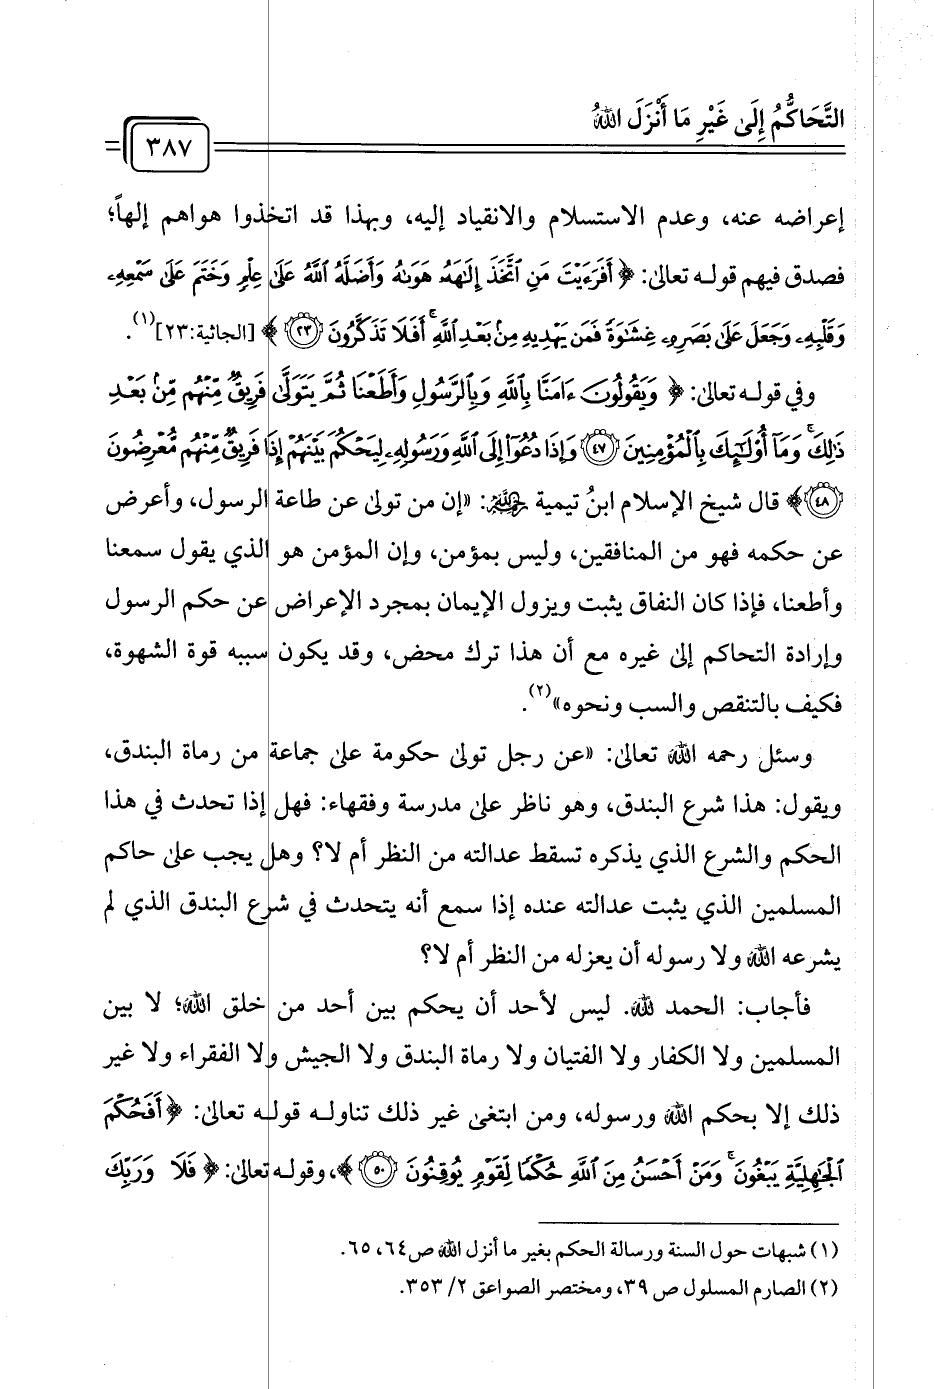 التَّحَاكُمُ إِلَىٰ غَيْرِ مَا أَنْزَلَ اللهُ
٣٨٧
إعراضه عنه، وعدم الاستسلام والانقياد إليه، وبهذا قد اتخذوا هواهم إلهاً؛
فصدق فيهم قوله تعالىٰ: ﴿ أَفَرَءَيْتَ مَنِ ٱتَّخَذَ إِلَٰهَهُۥ هَوَىٰهُ وَأَضَلَّهُ ٱللَّهُ عَلَىٰ عِلْمٍ وَخَتَمَ عَلَىٰ سَمْعِهِۦ
وَقَلْبِهِۦ وَجَعَلَ عَلَىٰ بَصَرِهِۦ غِشَٰوَةً فَمَن يَهْدِيهِ مِنۢ بَعْدِ ٱللَّهِ ۚ أَفَلَا تَذَكَّرُونَ ٢٣ ﴾ [الجاثية:٢٣](١).
وفي قوله تعالىٰ: ﴿ وَيَقُولُونَ ءَامَنَّا بِٱللَّهِ وَبِٱلرَّسُولِ وَأَطَعْنَا ثُمَّ يَتَوَلَّىٰ فَرِيقٌ مِّنْهُم مِّنۢ بَعْدِ
ذَٰلِكَ ۚ وَمَآ أُو۟لَٰٓئِكَ بِٱلْمُؤْمِنِينَ ٤٧ وَإِذَا دُعُوٓا۟ إِلَى ٱللَّهِ وَرَسُولِهِۦ لِيَحْكُمَ بَيْنَهُمْ إِذَا فَرِيقٌ مِّنْهُم مُّعْرِضُونَ
٤٨ ﴾ قال شيخ الإسلام ابنُ تيمية رحمه الله: «إن من تولىٰ عن طاعة الرسول، وأعرض
عن حكمه فهو من المنافقين، وليس بمؤمن، وإن المؤمن هو الذي يقول سمعنا
وأطعنا، فإذا كان النفاق يثبت ويزول الإيمان بمجرد الإعراض عن حكم الرسول
وإرادة التحاكم إلىٰ غيره مع أن هذا ترك محض، وقد يكون سببه قوة الشهوة،
فكيف بالتنقص والسب ونحوه»(٢).
وسئل رحمه الله تعالىٰ: «عن رجل تولىٰ حكومة علىٰ جماعة من رماة البندق،
ويقول: هذا شرع البندق، وهو ناظر علىٰ مدرسة وفقهاء: فهل إذا تحدث في هذا
الحكم والشرع الذي يذكره تسقط عدالته من النظر أم لا؟ وهل يجب علىٰ حاكم
المسلمين الذي يثبت عدالته عنده إذا سمع أنه يتحدث في شرع البندق الذي لم
يشرعه الله ولا رسوله أن يعزله من النظر أم لا؟
فأجاب: الحمد لله. ليس لأحد أن يحكم بين أحد من خلق الله؛ لا بين
المسلمين ولا الكفار ولا الفتيان ولا رماة البندق ولا الجيش ولا الفقراء ولا غير
ذلك إلا بحكم الله ورسوله، ومن ابتغىٰ غير ذلك تناوله قوله تعالىٰ: ﴿ أَفَحُكْمَ
ٱلْجَٰهِلِيَّةِ يَبْغُونَ ۚ وَمَنْ أَحْسَنُ مِنَ ٱللَّهِ حُكْمًا لِّقَوْمٍ يُوقِنُونَ ٥٠ ﴾، وقوله تعالىٰ: ﴿ فَلَا وَرَبِّكَ
(١) شبهات حول السنة ورسالة الحكم بغير ما أنزل الله ص٦٤، ٦٥.
(٢) الصارم المسلول ص ٣٩، ومختصر الصواعق ٢/ ٣٥٣.